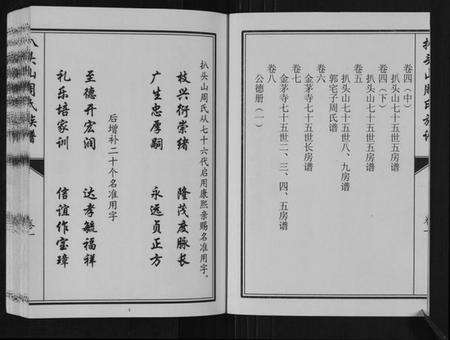 扒头山周氏族谱
卷四(中)
扒头山七十五世五房谱
卷四(下)
扒头山七十五世五房谱
卷五
扒头山七十五世八、九房谱
卷六
郭宅子周氏谱
卷七
金茅寺七十五世长房谱
金茅寺七十五世二、三、四、五房谱
卷八
公德册(一)
扒头山周氏从七十六代启用康熙亲赐名准用字。
枝兴衍崇绪 隆茂度脉长
广生忠厚嗣 永远贞正方
后增补二十个名准用字
至德开宏润 达孝毓福祥
礼乐培家训 信谊作宝璋
扒头山周氏族谱
卷一